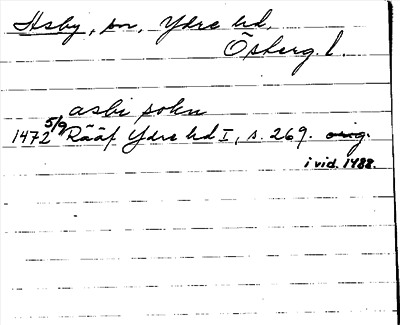 Asby, sn, Ydre hd,
Östberg. l.
asbi sokn
1472 5/9 Rääf Ydre hd I, s. 269. orig.
i vid. 1488.